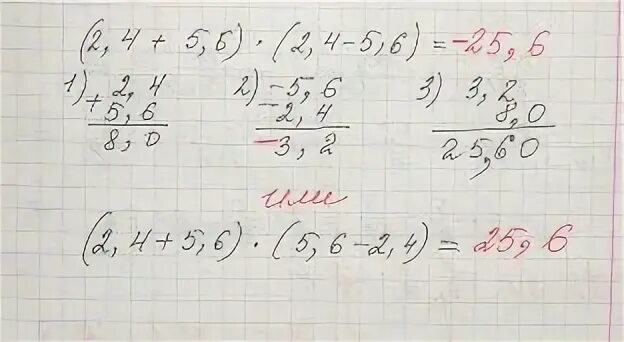 (2,4 + 5,6) · (2,4 - 5,6) = -25,6
1) 2,4 2) -5,6 3) 3,2
+ 5,6 - 2,4 8,0
8,0 -3,2 25,60
или
(2,4 + 5,6) · (5,6 - 2,4) = 25,6